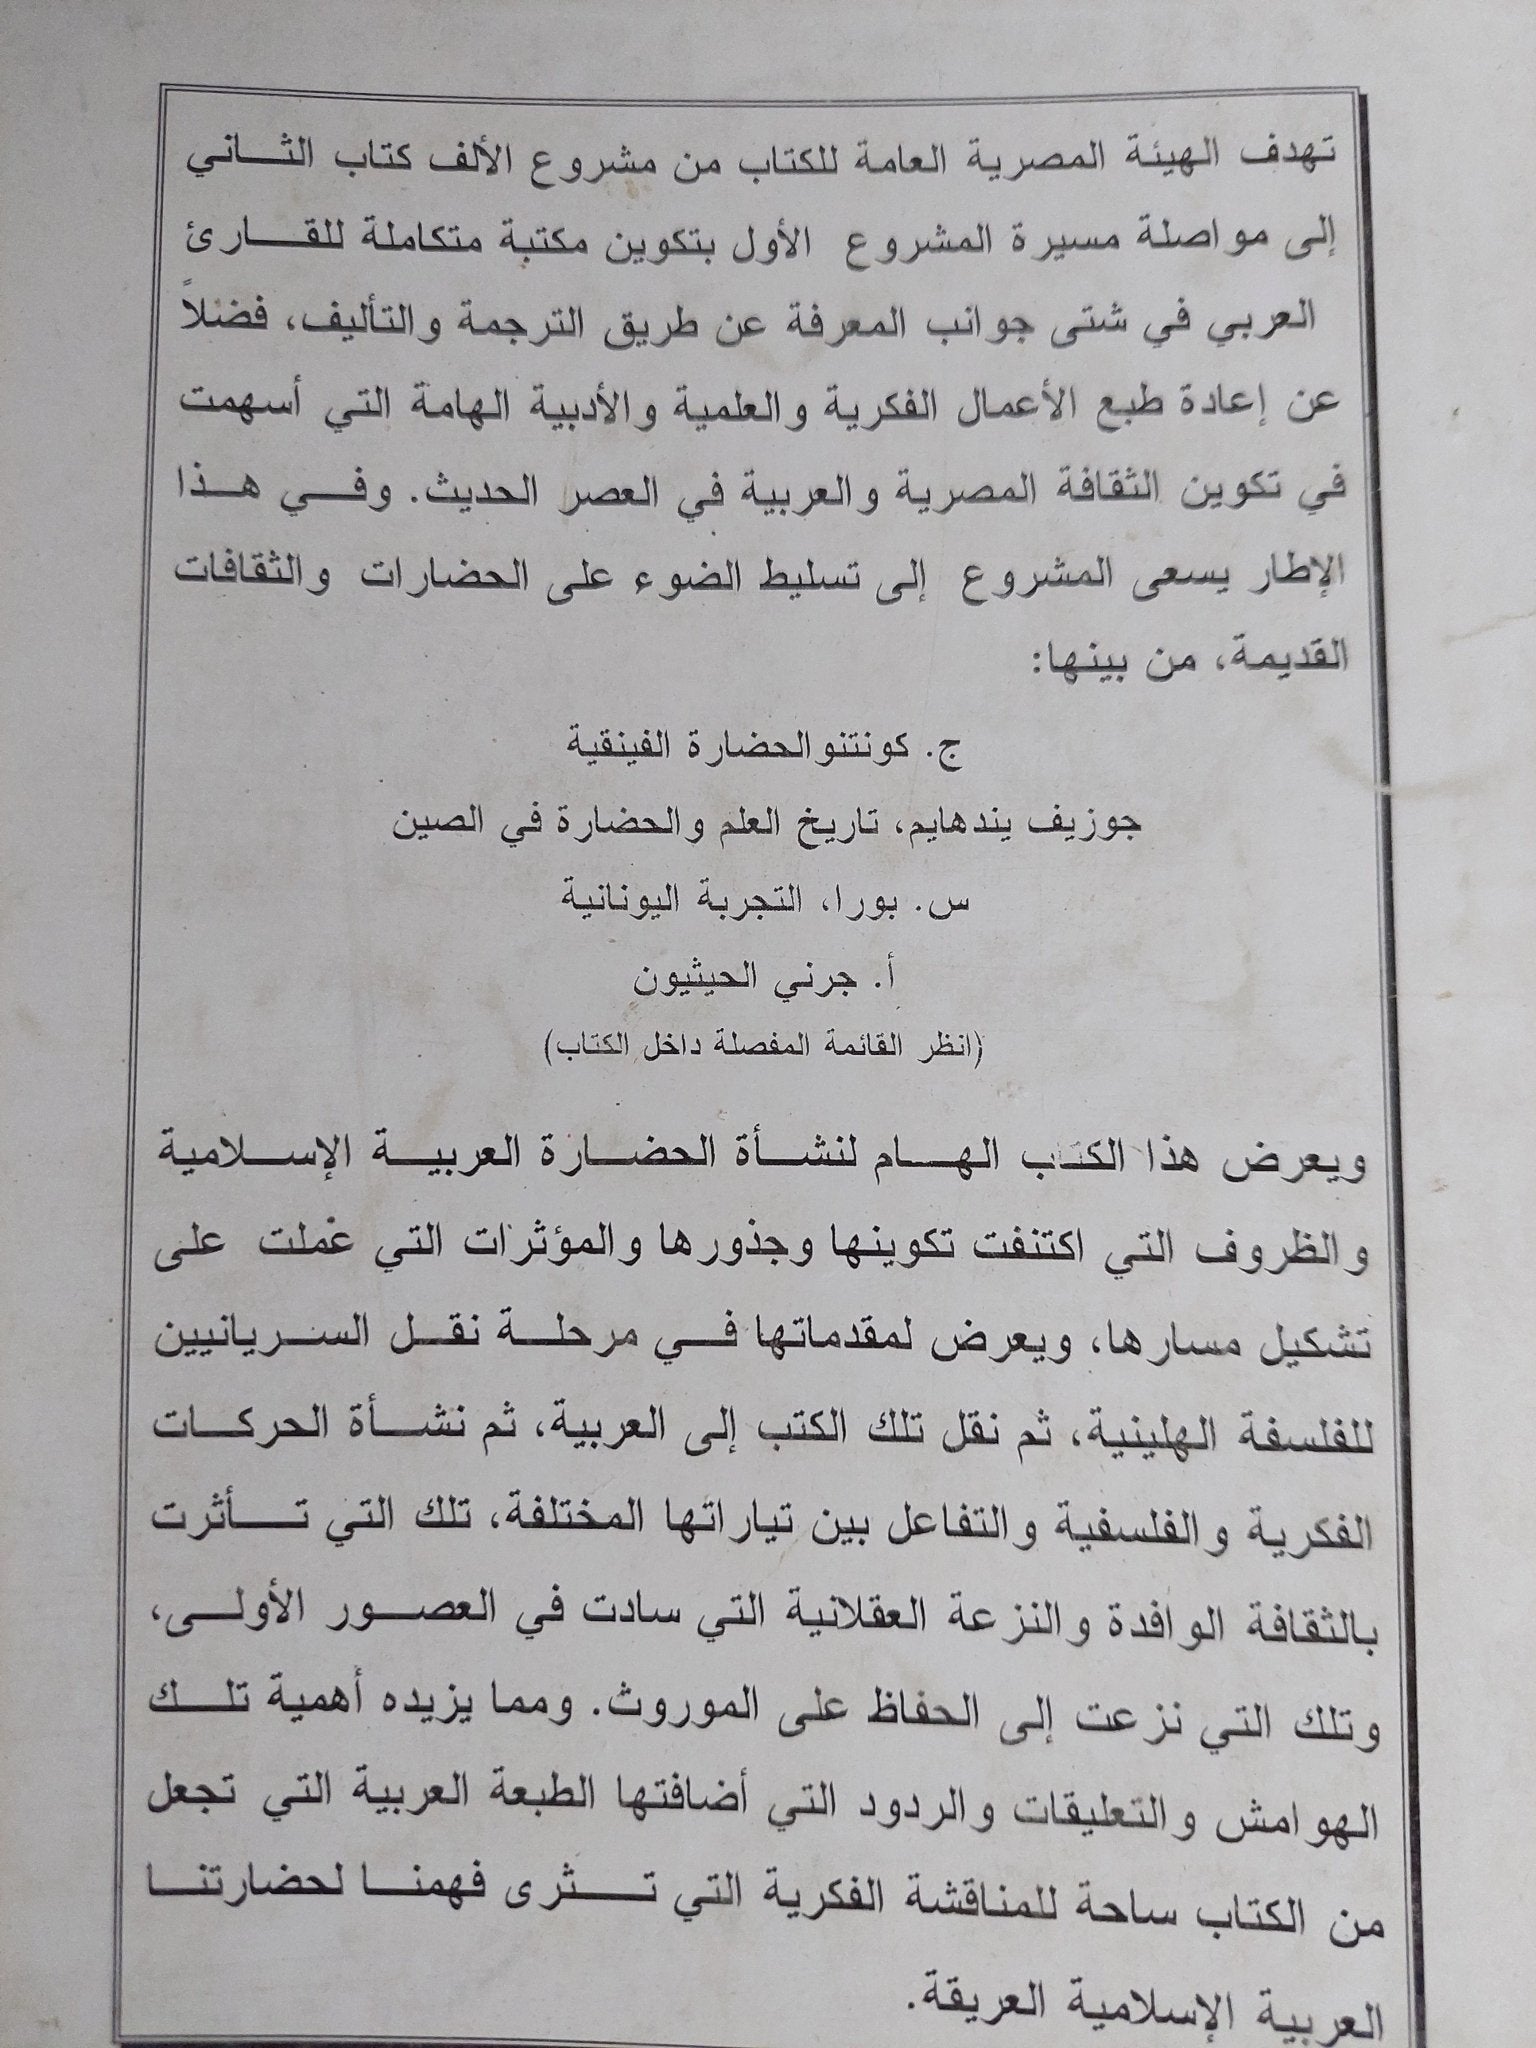 تهدف الهيئة المصرية العامة للكتاب من مشروع الألف كتاب الثاني
إلى مواصلة مسيرة المشروع الأول بتكوين مكتبة متكاملة للقارئ
العربي في شتى جوانب المعرفة عن طريق الترجمة والتأليف، فضلاً
عن إعادة طبع الأعمال الفكرية والعلمية والأدبية الهامة التي أسهمت
في تكوين الثقافة المصرية والعربية في العصر الحديث. وفي هذا
الإطار يسعى المشروع إلى تسليط الضوء على الحضارات والثقافات
القديمة، من بينها:
ج. كونتنوالحضارة الفينقية
جوزيف يندهايم، تاريخ العلم والحضارة في الصين
س. بورا، التجربة اليونانية
أ. جرني الحيثيون
(انظر القائمة المفصلة داخل الكتاب)
ويعرض هذا الكتاب الهام لنشأة الحضارة العربية الإسلامية
والظروف التي اكتنفت تكوينها وجذورها والمؤثرات التي عملت على
تشكيل مسارها، ويعرض لمقدماتها في مرحلة نقل السريانيين
للفلسفة الهلينية، ثم نقل تلك الكتب إلى العربية، ثم نشأة الحركات
الفكرية والفلسفية والتفاعل بين تياراتها المختلفة، تلك التي تأثرت
بالثقافة الوافدة والنزعة العقلانية التي سادت في العصور الأولى،
وتلك التي نزعت إلى الحفاظ على الموروث. ومما يزيده أهمية تلك
الهوامش والتعليقات والردود التي أضافتها الطبعة العربية التي تجعل
من الكتاب ساحة للمناقشة الفكرية التي تثرى فهمنا لحضارتنا
العربية الإسلامية العريقة.